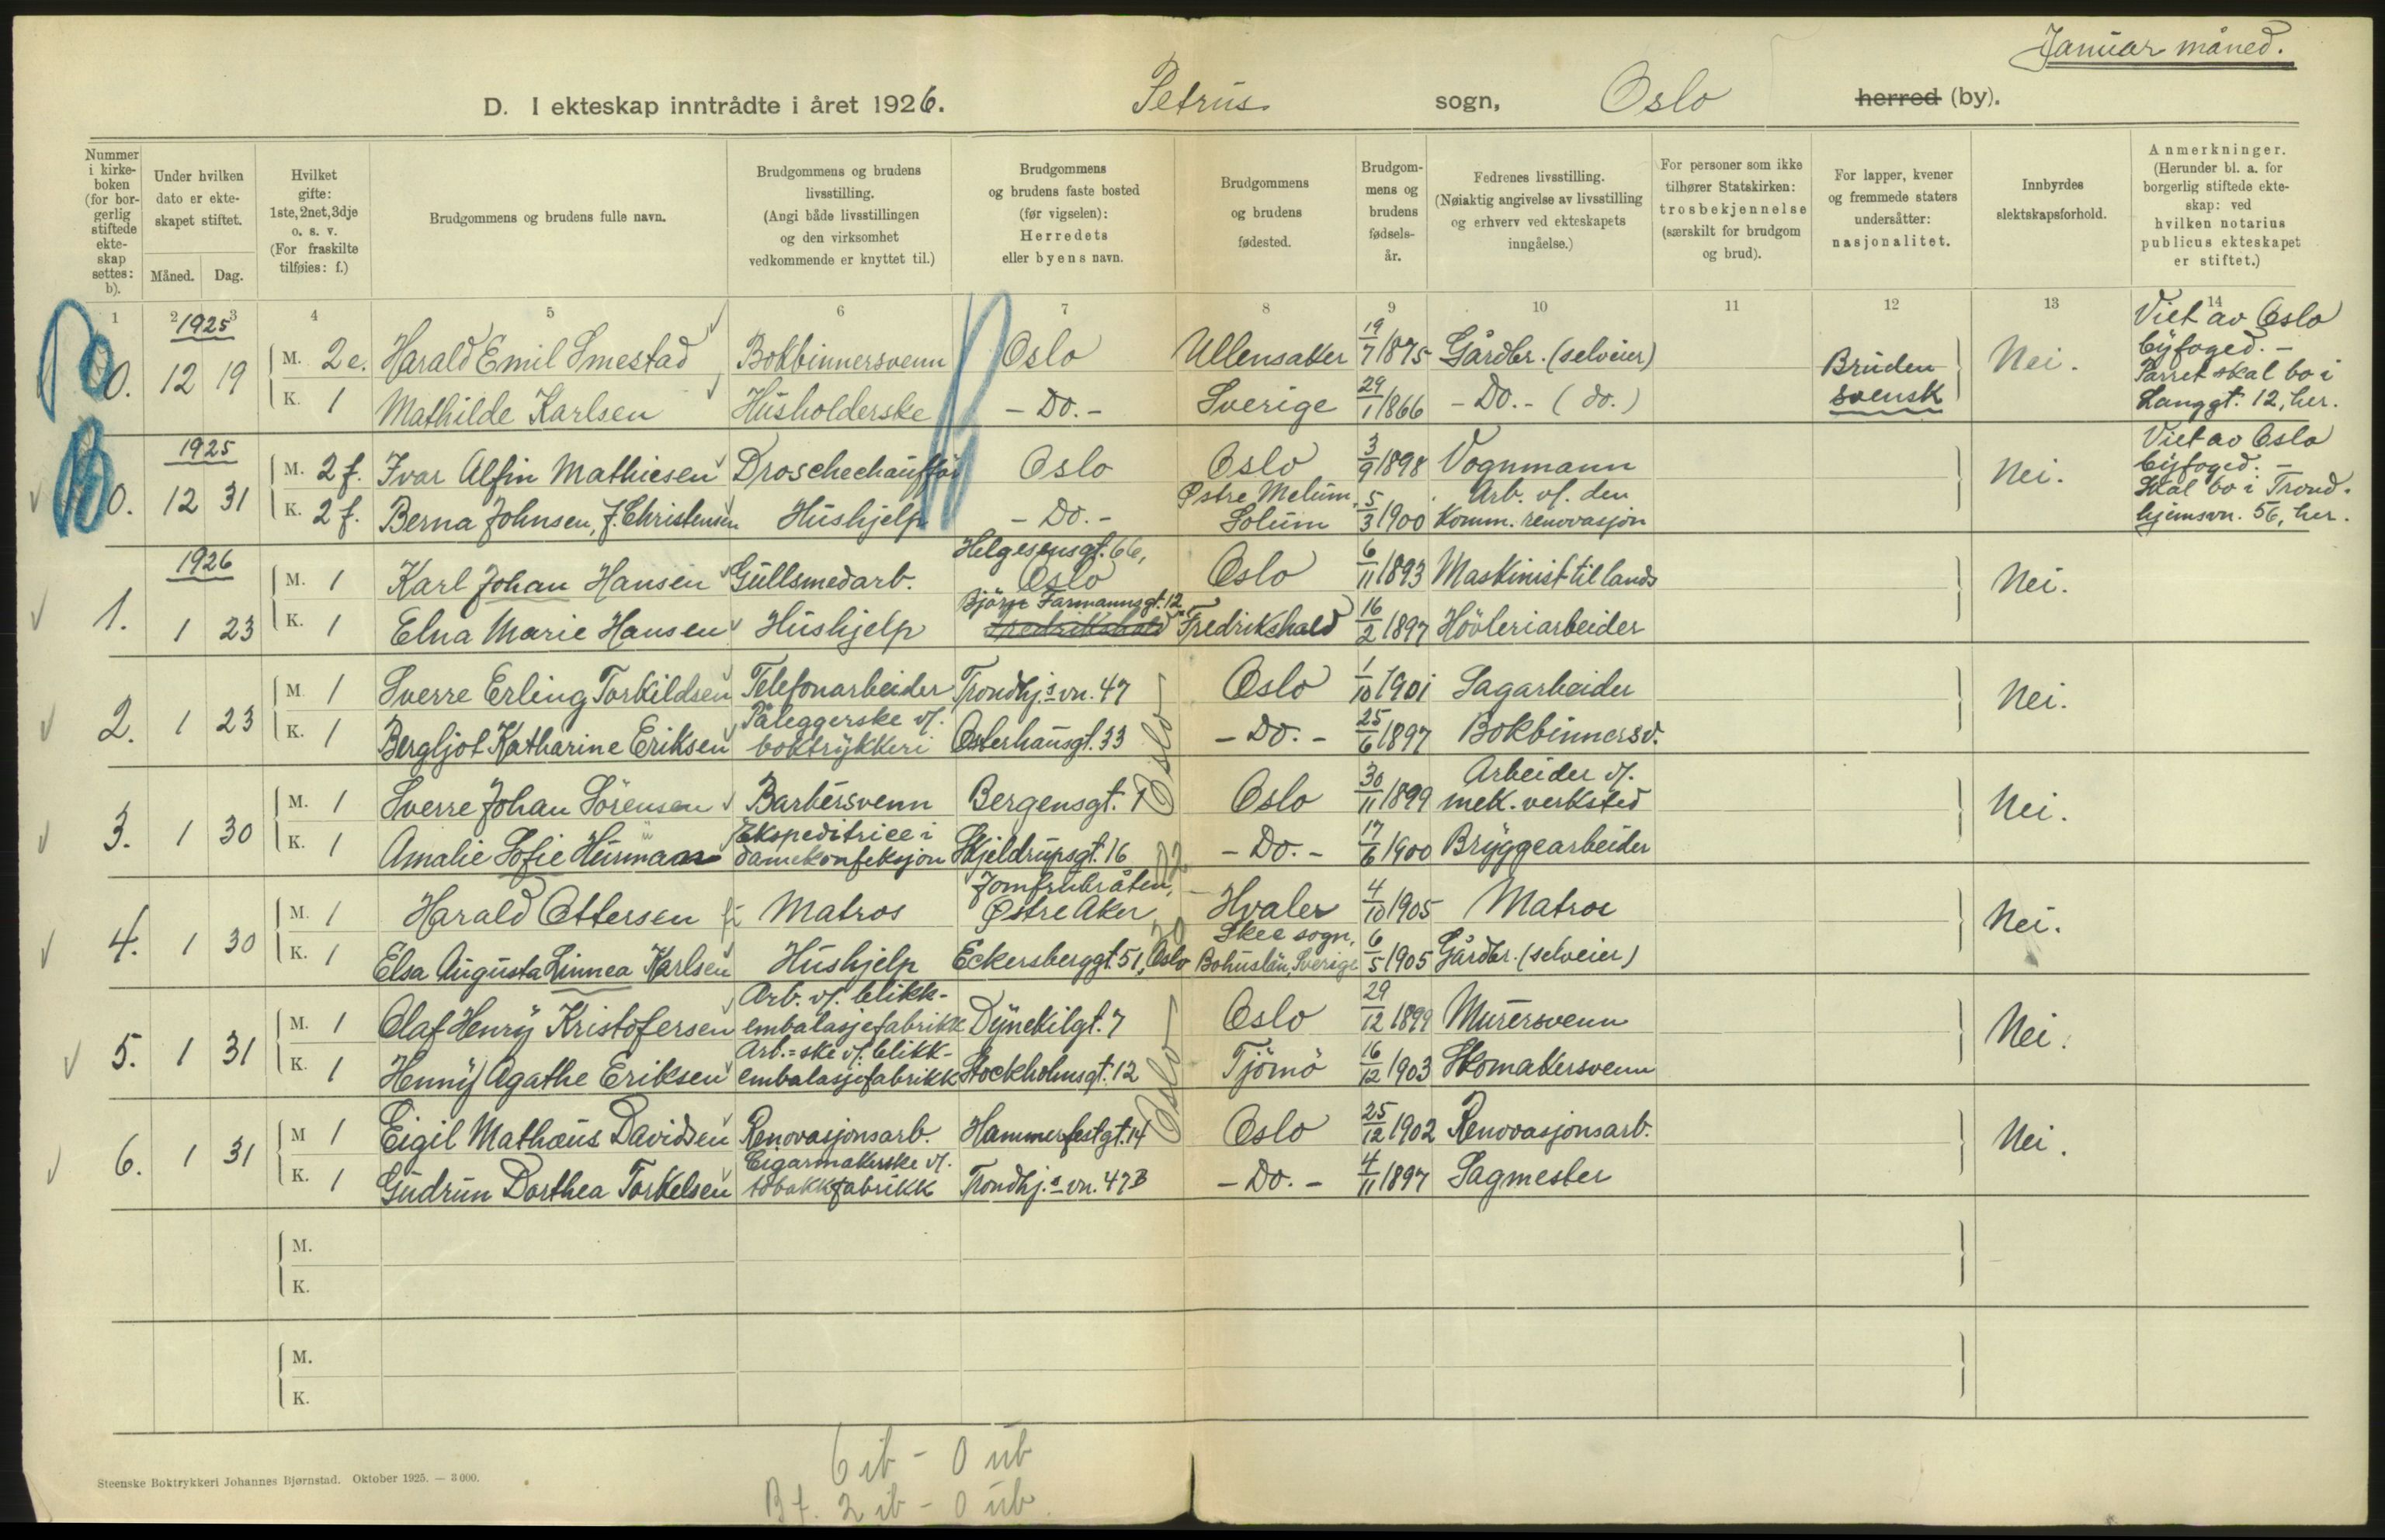 Januar måned.
D. I ekteskap inntrådte i året 1926. Petrus sogn, Oslo herred (by).
Nummer i kirke- boken (for bor- gerlig stiftede ekte- skap settes: b).
Under hvilken dato er ekte- skapet stiftet.
Måned. Dag.
Hvilket gifte: 1ste, 2net, 3dje o. s. v. (For fraskilte tilføies: f.)
Brudgommens og brudens fulle navn.
Brudgommens og brudens livsstilling. (Angi både livsstillingen og den virksomhet vedkommende er knyttet til.)
Brudgommens og brudens faste bosted (før vigselen): Herredets eller byens navn.
Brudgommens og brudens fødested.
Brudgom- mens og brudens fødsels- år.
Fedrenes livsstilling. (Nøiaktig angivelse av livsstilling og erhverv ved ekteskapets inngåelse.)
For personer som ikke tilhører Statskirken: trosbekjennelse (særskilt for brudgom og brud).
For lapper, kvener og fremmede staters undersåtter: nasjonalitet.
Innbyrdes slektskapsforhold.
Anmerkninger. (Herunder bl. a. for borgerlig stiftede ekte- skap: ved hvilken notarius publicus ekteskapet er stiftet.)
1 2 3 4 5 6 7 8 9 10 11 12 13 14
1925
0. 12 19 M. 2 e. Harald Emil Smestad Bokbinnersvenn Oslo Ullensaker 19/7 1875 Gårdbr. (selveier) Bruden svensk Nei. Viet av Oslo byfoged. – Parret skal bo i Langgt. 12, her.
K. 1 Mathilde Karlsen Husholderske - Do. - Sverige 29/1 1866 - Do. - (do.)
1925
0. 12 31 M. 2 f. Ivar Alfin Mathiesen Droschechauffør Oslo Oslo 3/9 1898 Vognmann Nei. Viet av Oslo byfoged. – Skal bo i Trond- hjemsvn. 56, her.
K. 2 f. Berna Johnsen, f. Christensen Hushjelp - Do. - Østre Melum, Solum 5/3 1900 Arb. v/. den Komm. renovasjon
1926
1. 1 23 M. 1 Karl Johan Hansen Gullsmedarb. Helgesensgt. 66, Oslo Oslo 6/11 1893 Maskinist til lands Nei.
K. 1 Elna Marie Hansen Hushjelp Björn Farmannsgt. 12 Fredrikshald Fredrikshald 16/2 1897 Hövleriarbeider
2. 1 23 M. 1 Sverre Erling Torkildsen Telefonarbeider Trondhj.s vn. 47 Oslo Oslo 1/10 1901 Sagarbeider Nei.
K. 1 Bergljot Katharine Eriksen Påleggerske v/. boktrykkeri Osterhausgt. 33 - Do. - 25/6 1897 Bokbinnersv.
3. 1 30 M. 1 Sverre Johan Sörensen Barbersvenn Bergensgt. 1 Oslo 30/11 1899 Arbeider v/. mek. verksted Nei.
K. 1 Amalie Sofie Hurmann Ekspeditrice i damekonfeksjon Skjeldrupsgt. 16 - Do. - 17/6 1900 Bryggearbeider
4. 1 30 M. 1 Harald Ottersen Matros Jomfrubråten, Østre Aker Hvaler 4/10 1905 Matros Nei.
K. 1 Elsa Augusta Linnea Karlsen Hushjelp Eckersberggt. 51, Oslo Skee sogn, Bohuslän, Sverige 6/5 1905 Gårdbr. (selveier)
5. 1 31 M. 1 Olaf Henry Kristofersen Arb. v/. blikk- embalasjefabrikk Dynekilgt. 7 Oslo Oslo 29/12 1899 Murersvenn Nei.
K. 1 Henny Agathe Eriksen Arb.=ske v/. blikk- embalasjefabrikk Stockholmsgt. 12 Tjömö 16/12 1903 Skomakersvenn
6. 1 31 M 1 Eigil Mathæus Davidsen Renovasjonsarb. Hammerfestgt. 14 Oslo 25/12 1902 Renovasjonsarb. Nei.
K. 1 Gudrun Dorthea Torkelsen Cigarmakerske v/. tobakkfabrikk Trondhj.s vn. 47B - Do. - 4/11 1897 Sagmester
M.
K.
M.
K.
6 ib - 0 ub
Bf. 2 ib - 0 ub.
Steenske Boktrykkeri Johannes Bjørnstad. Oktober 1925. — 3000.